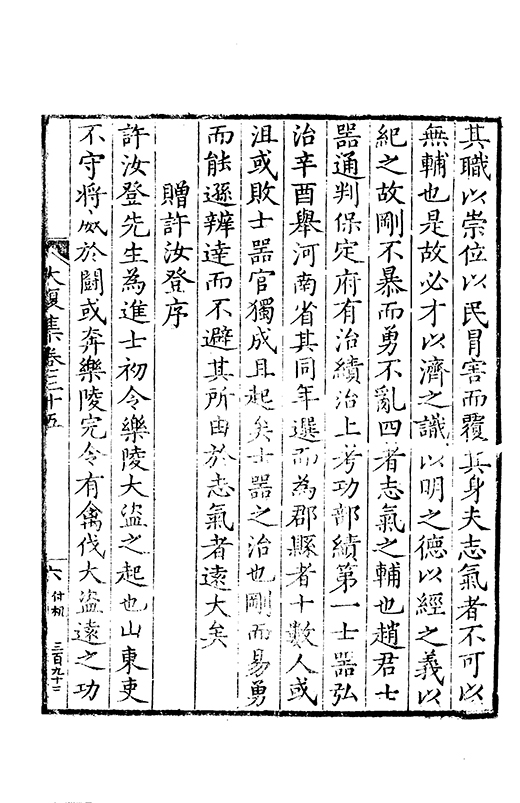 其職以崇位以民冐害而覆其身夫志氣者不可以
無輔也是故必才以濟之識以明之德以經之義以
紀之故剛不暴而勇不亂四者志氣之輔也趙君士
器通判保定府有治績治上考功部績第一士器弘
治辛酉舉河南省其同年選而為郡縣者十數人或
沮或敗士器官獨成且起矣士器之治也剛而易勇
而能遜辨達而不避其所由於志氣者遠大矣
贈許汝登序
許汝登先生為進士初令樂陵大盜之起也山東吏
不守將威於鬬或奔樂陵完令有禽伐大盜遠之功
大復集卷三十五
六
付机
三百九十二